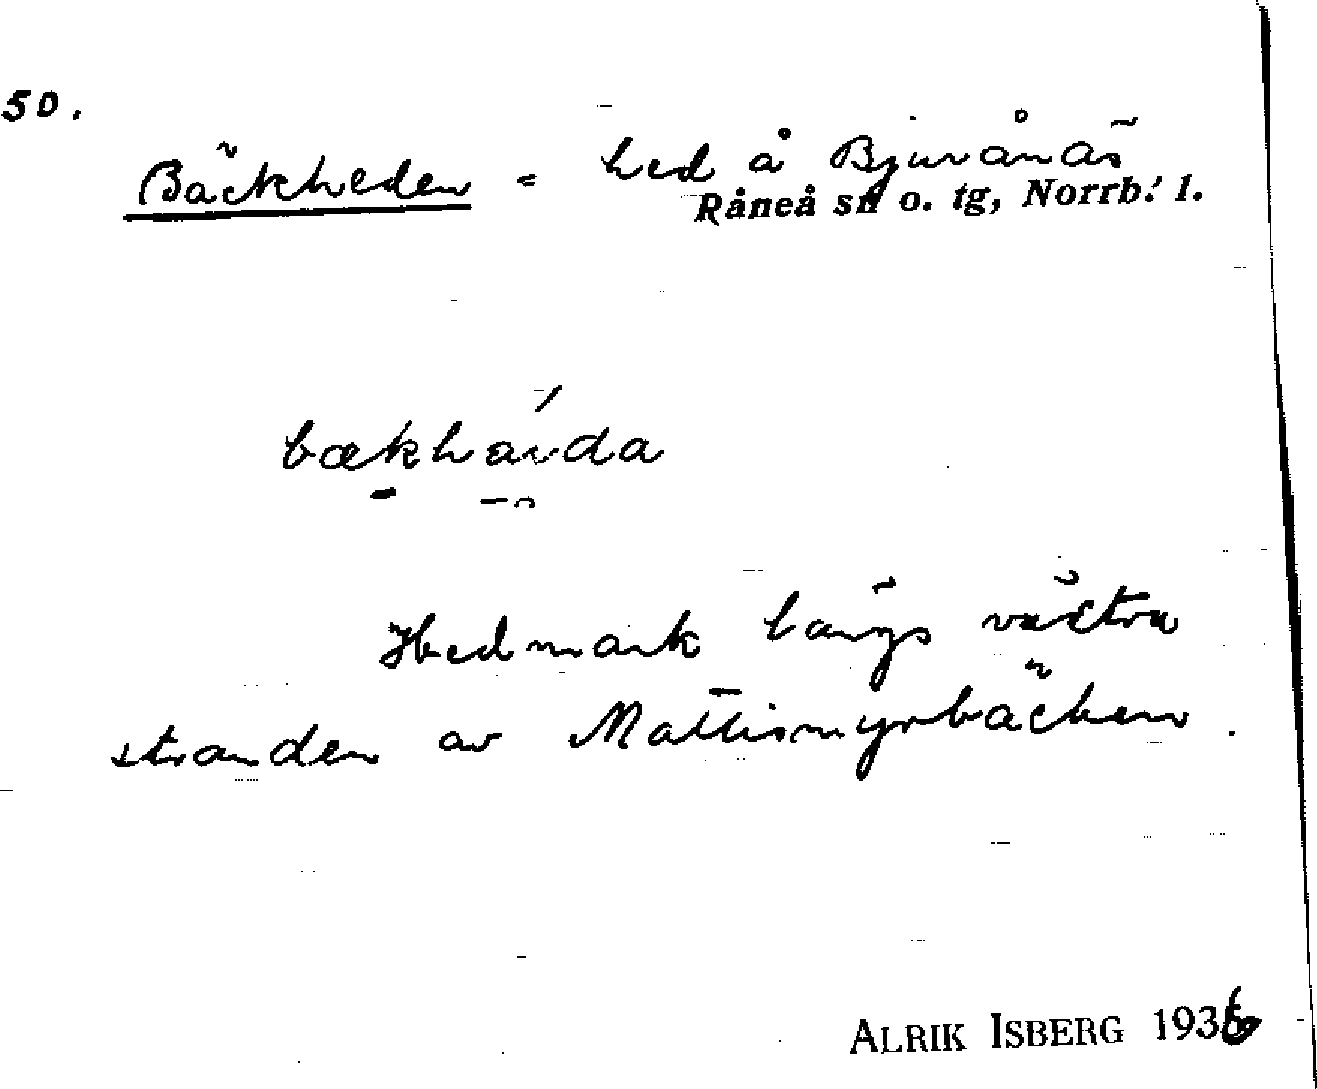 50.
Bäckheden = hed å Bjurånäs
Råneå sn o. tg, Norrb. l.
bækhaida
Hedmark längs västra
stranden av Mattismyrbäcken.
ALRIK ISBERG 1936